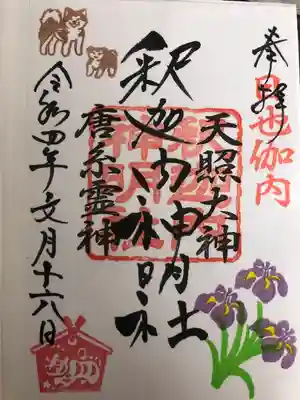 奉拝
日也伽内
天照大神
釈迦内神明社
唐糸霊神
令和四年文月十 日